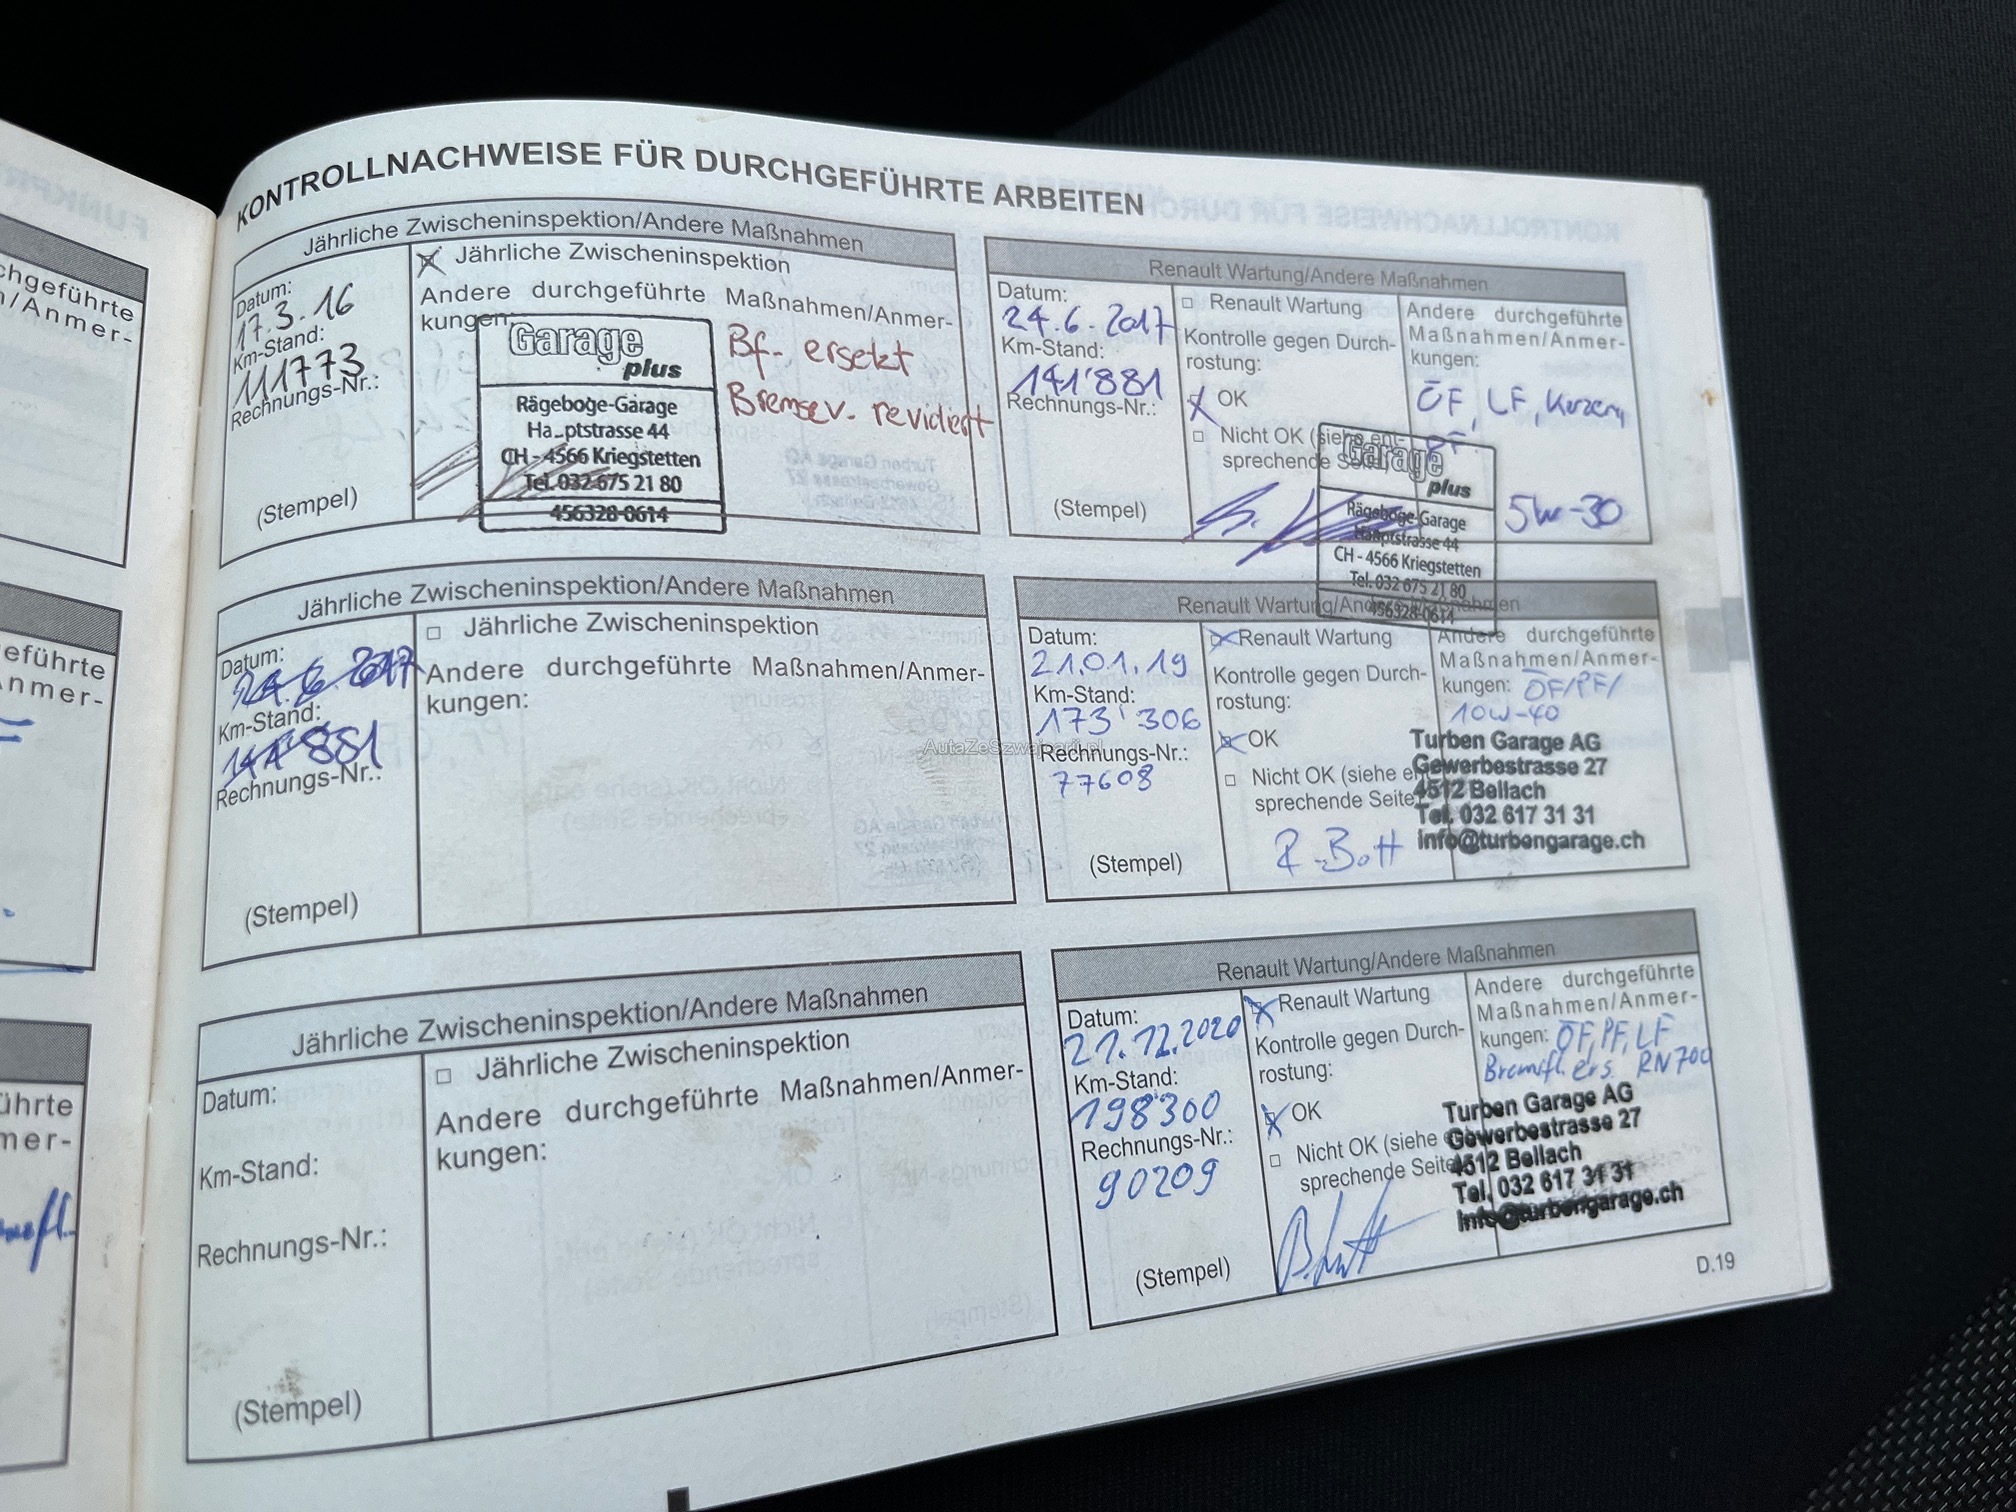 KONTROLLNACHWEISE FÜR DURCHGEFÜHRTE ARBEITEN
Jährliche Zwischeninspektion/Andere Maßnahmen
Datum:
17.3.16
Km-Stand:
111773
Rechnungs-Nr.:
(Stempel)
Jährliche Zwischeninspektion
Andere durchgeführte Maßnahmen/Anmer-
kungen:
Garage
plus
Rägeboge-Garage
Ha_ptstrasse 44
CH - 4566 Kriegstetten
Tel. 032 675 21 80
456328-0614
Bf. ersetzt
Bremsev. revidiert
Renault Wartung/Andere Maßnahmen
Datum:
24.6.2017
Km-Stand:
141'881
Rechnungs-Nr.:
(Stempel)
Renault Wartung
Kontrolle gegen Durch-
rostung:
OK
Nicht OK (siehe ent-
sprechende Seite)
Andere durchgeführte
Maßnahmen/Anmer-
kungen:
ÖF, LF,
5W-30
Garage
plus
Rägeboge-Garage
Hauptstrasse 44
CH - 4566 Kriegstetten
Tel. 032 675 21 80
456328-0614
Jährliche Zwischeninspektion/Andere Maßnahmen
Datum:
24.6.2017
Km-Stand:
141'881
Rechnungs-Nr.:
(Stempel)
Jährliche Zwischeninspektion
Andere durchgeführte Maßnahmen/Anmer-
kungen:
Renault Wartung/Andere Maßnahmen
Datum:
21.01.19
Km-Stand:
173'306
Rechnungs-Nr.:
77608
(Stempel)
Renault Wartung
Kontrolle gegen Durch-
rostung:
OK
Nicht OK (siehe
sprechende Seite
R. Bott
Andere durchgeführte
Maßnahmen/Anmer-
kungen: ÖF/PF/
10W-40
Turben Garage AG
Gewerbestrasse 27
4512 Bellach
Tel. 032 617 31 31
info@turbengarage.ch
AutaZeSzwajcarii.pl
Jährliche Zwischeninspektion/Andere Maßnahmen
Datum:
Km-Stand:
Rechnungs-Nr.:
(Stempel)
Jährliche Zwischeninspektion
Andere durchgeführte Maßnahmen/Anmer-
kungen:
Renault Wartung/Andere Maßnahmen
Datum:
21.12.2020
Km-Stand:
198'300
Rechnungs-Nr.:
90209
(Stempel)
Renault Wartung
Kontrolle gegen Durch-
rostung:
OK
Nicht OK (siehe
sprechende Seite
Andere durchgeführte
Maßnahmen/Anmer-
kungen: ÖF, PF, LF
Bremsfl. ers. RN700
Turben Garage AG
Gewerbestrasse 27
4512 Bellach
Tel. 032 617 31 31
info@turbengarage.ch
D.19